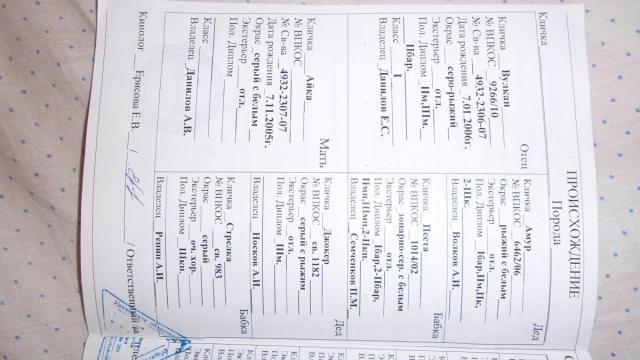 ПРОИСХОЖДЕНИЕ
Порода
Кличка
Отец
Кличка Вулкан
№ ВПКОС 9266/10
№ Св-ва 4932-2306-07
Дата рождения 7.01.2006г.
Окрас серо-рыжий
Экстерьер отл.
Пол. Диплом IIм,IIIм.
IIбар.
Класс I
Владелец Данилов Е.С.
Мать
Кличка Айка
№ ВПКОС
№ Св-ва 4932-2307-07
Дата рождения 7.11.2005г.
Окрас серый с белым
Экстерьер отл.
Пол. Диплом
Класс
Владелец Данилов А.В.
Кинолог Ерисова Е.В. /
Дед
Кличка Амур
№ ВПКОС 6462/06
Окрас рыжий с белым
Экстерьер отл.
Пол. Диплом
Владелец Волков А.И.
Бабка
Кличка Песта
№ ВПКОС 1014/02
Окрас зонарно-сер. с белым
Экстерьер отл.
Пол. Диплом Iбар,2-IIбар,
Владелец Семченков П.М.
Дед
Кличка Джокер
№ ВПКОС св. 1182
Окрас серый с рыжим
Экстерьер отл.
Пол. Диплом IIIм.
Владелец Носков А.И.
Бабка
Кличка Стрелка
№ ВПКОС св. 983
Окрас серый
Экстерьер оч. хор.
Пол. Диплом IIIкп.
Владелец Репки А.И.
/ Ответственный за